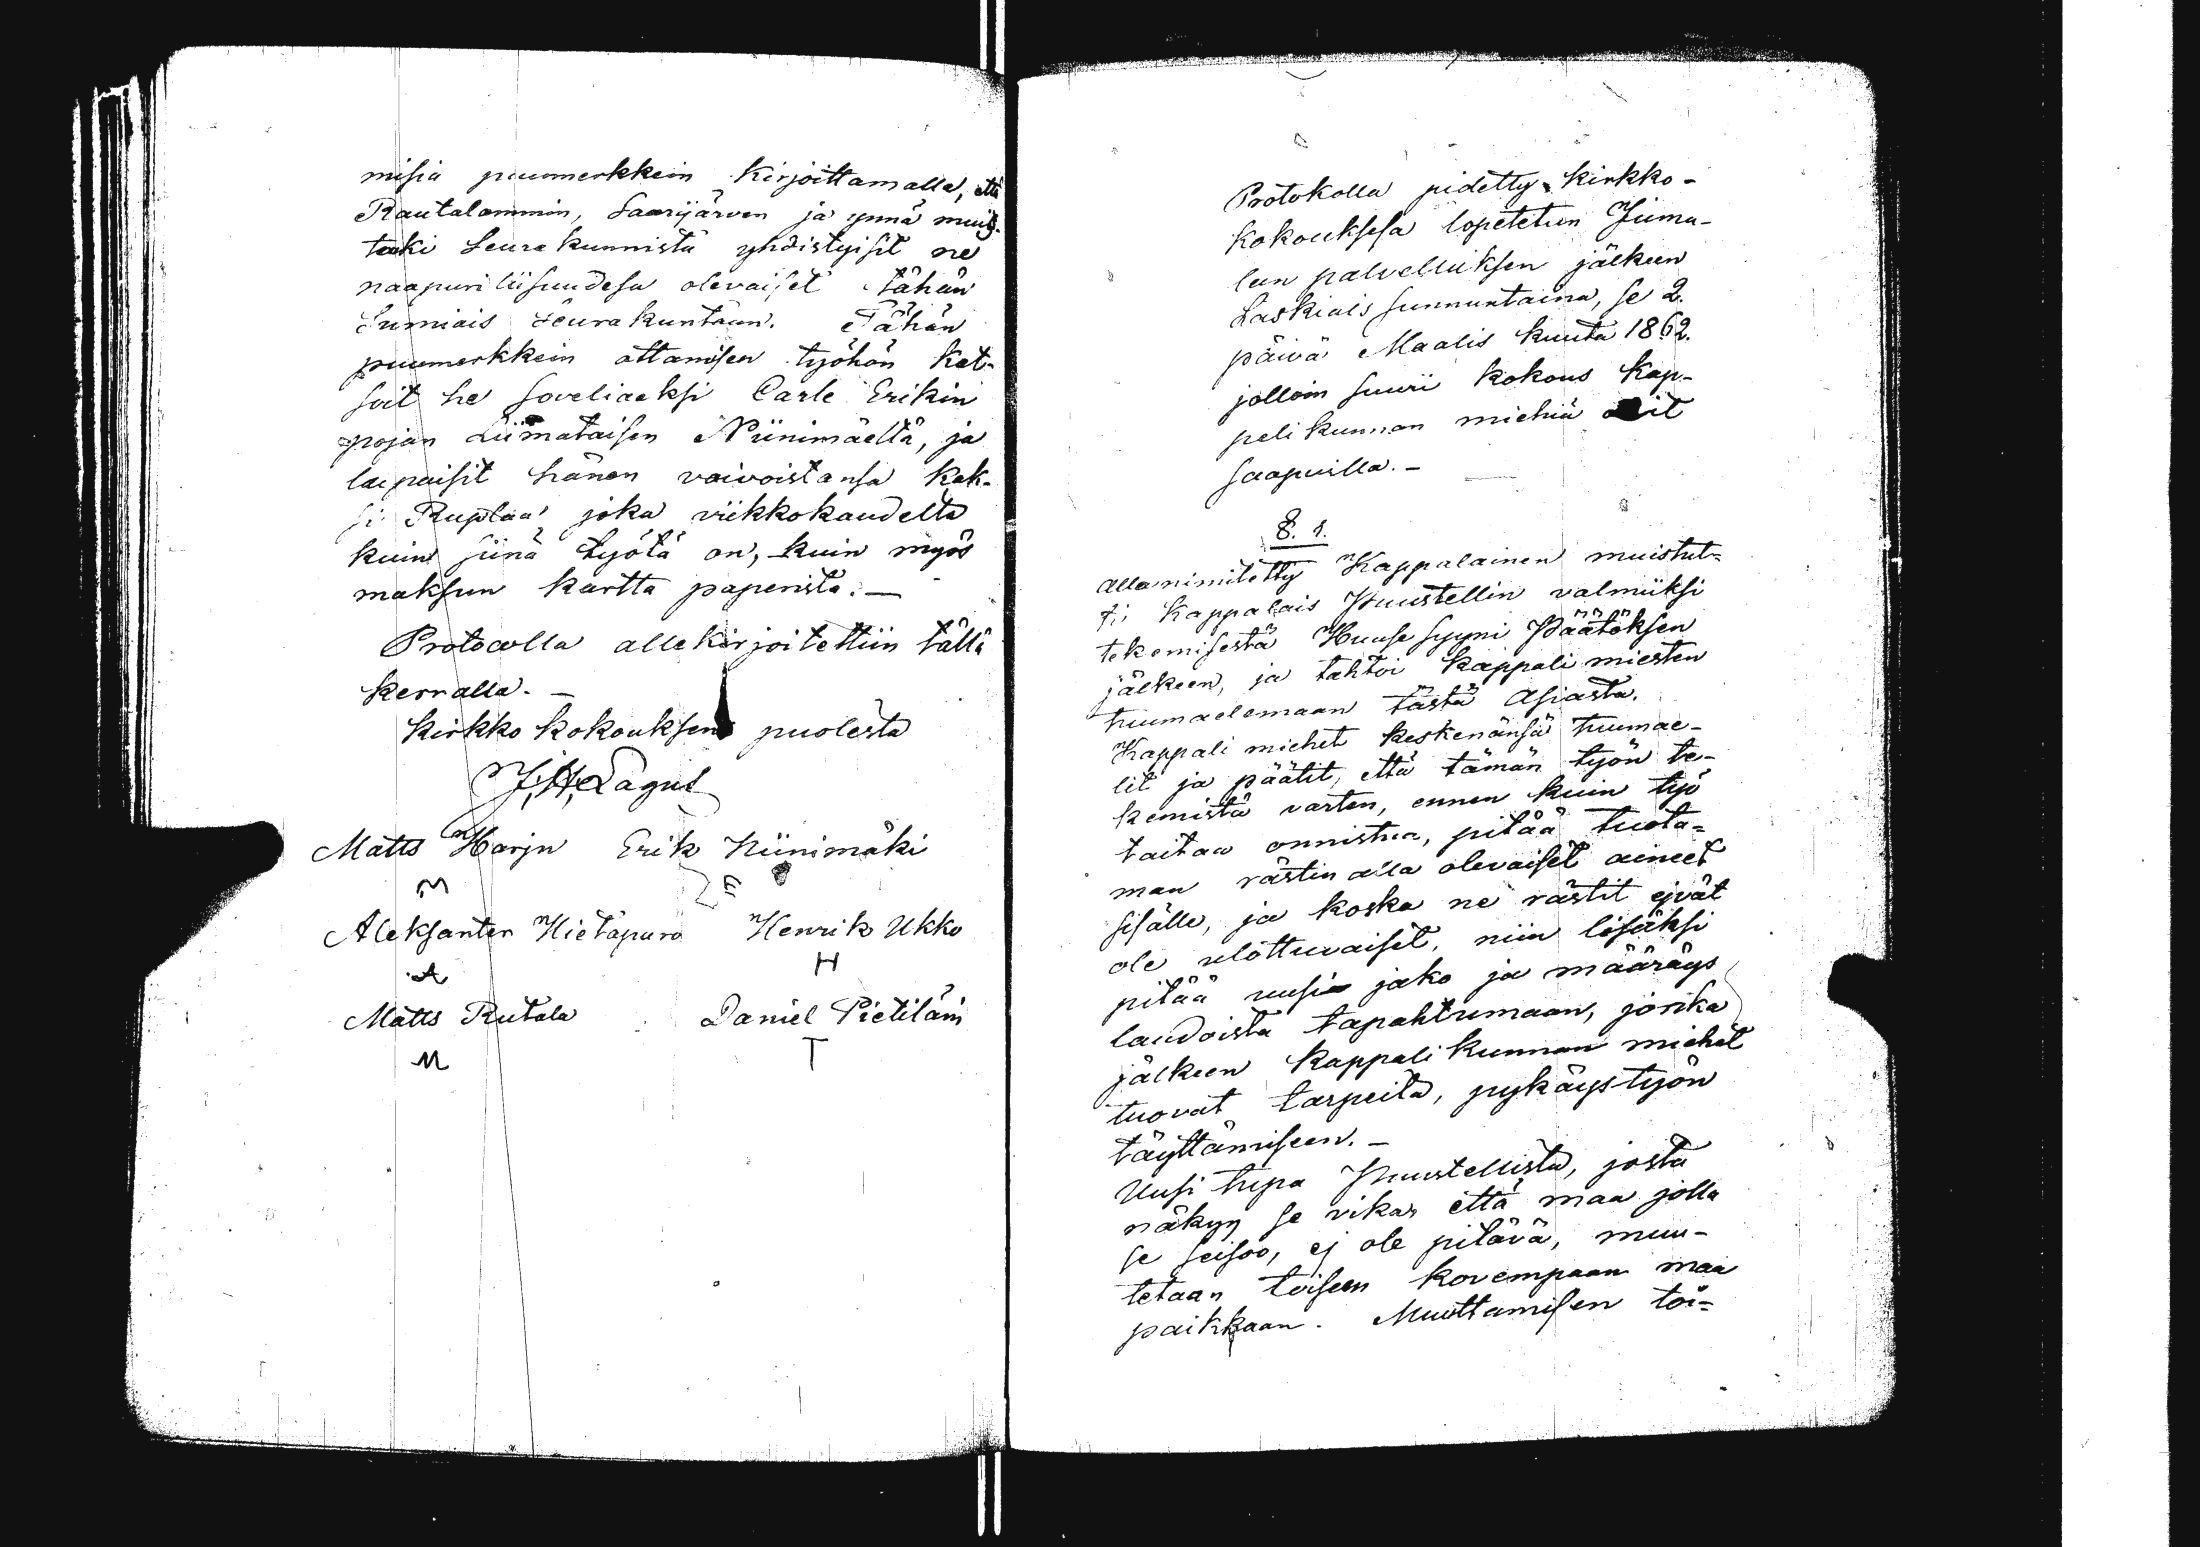 misia puumerkkein kirjoittamalla, että
Rautalammin, Saarijärven ja ynnä muis-
taki Seurakunnista yhdistyisit ne
naapuriliisuudesa olevaiset tähän
Sumiais Seurakuntaan. Tähän
puumerkkein ottamisen työhön kat-
soit he soveliaaksi Carle Erikin
pojan Liimataisen Niinimäeltä, ja
lupaisit hänen vaivoistansa kak-
si Ruplaa joka viikkokaudelta
kuin siinä työtä on, kuin myös
maksun kartta paperista. —
Protocolla allekirjoitettiin tällä
kerralla. —
Kirkko kokouksen puolesta
J. H. Lagus
Matts Harju Erik Niinimäki
M E
Aleksanter Hietapuro Henrik Ukko
A H
Matts Rutala Daniel Pietiläin
M T
Protokolla pidetty kirkko-
kokouksesa lopetetun Juma-
lan palvelluksen jälkeen
Laskiais sunnuntaina, se 2.
päivä Maalis kuuta 1862.
jolloin suuri kokous Kap-
pelikunnan miehiä olit
saapuilla. —
§. 1.
Allanimitetty Kappalainen muistut-
ti Kappalais Puustellin valmiiksi
tekemisestä Huusesyyni Päätöksen
jälkeen, ja tahtoi kappali miesten
tuumaelemaan tästä Asiasta.
Kappali miehet keskenänsä tuumae-
lit ja päätit, että tämän työn te-
kemistä varten, ennen kuin työ
taitaa onnistua, pitää tuota-
man rästin alla olevaiset aineet
sisälle, ja koska ne rästit ejvät
ole ulottuvaiset, niin lisäksi
pitää uusi jako ja määräys
laudoista tapahtumaan, jonka
jälkeen kappalikunnan miehet
tuovat tarpeita, pykäystyön
täyttämiseen. —
Uusi tupa Puustellista, josta
näkyy se vika, että maa jolla
se seisoo, ej ole pitävä, muu-
tetaan toiseen kovempaan maa
paikkaan. Muuttamisen toi-